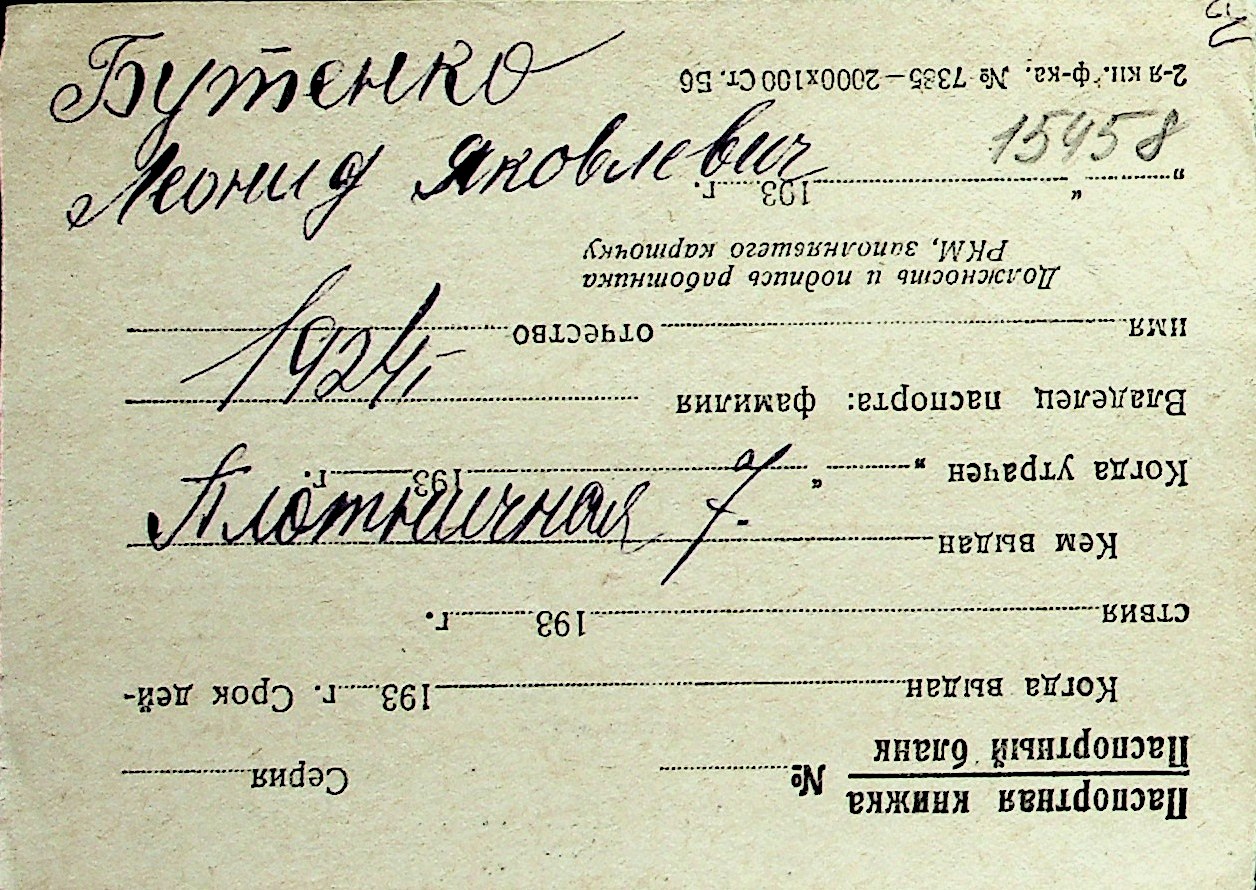 Бутенко
Леонид Яковлевич
1924
Плотничная 7.
15458
Паспортная книжка
Паспортный бланк
№ Серия
Когда выдан 193 г. Срок дей-
ствия 193 г.
Кем выдан
Когда утрачен „ “ 193 г.
Владелец паспорта: фамилия
имя отчество
Должность и подпись работника
РКМ, заполнявшего карточку
„ “ 193 г.
2-я кн. ф-ка. № 7335—2000х100 Ст. Б6